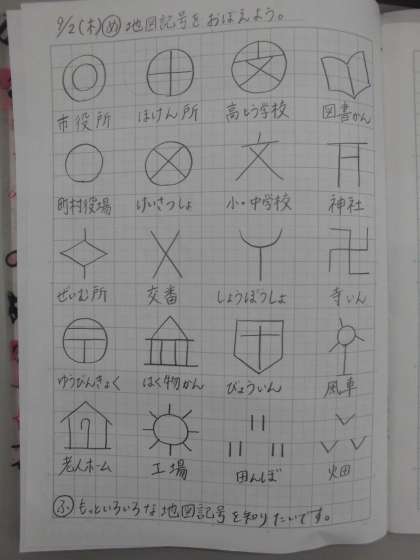 9/2(木)め 地図記号をおぼえよう。
市役所 ほけん所 高とう学校 図書かん
町村役場 けいさつしょ 小・中学校 神社
ぜいむ所 交番 しょうぼうしょ 寺いん
ゆうびんきょく はく物かん びょういん 風車
老人ホーム 工場 田んぼ 火田
ふ もっといろいろな地図記号を知りたいです。